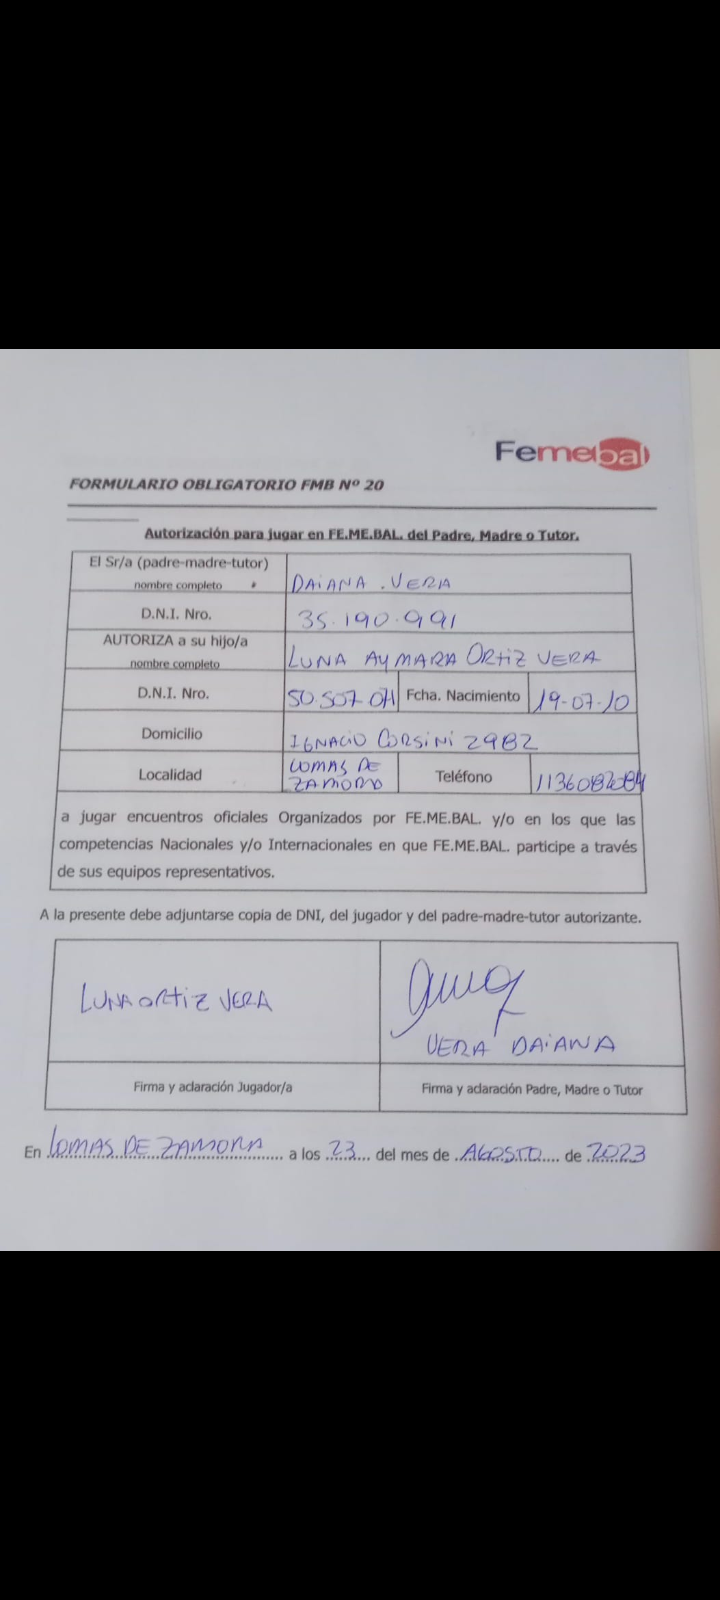 Femebal
FORMULARIO OBLIGATORIO FMB Nº 20
Autorización para jugar en FE.ME.BAL. del Padre, Madre o Tutor.
El Sr/a (padre-madre-tutor)
nombre completo * DAiANA . VERA
D.N.I. Nro. 35.190.991
AUTORIZA a su hijo/a
nombre completo LUNA AYMARA ORTiZ VERA
D.N.I. Nro. 50.507.071 Fcha. Nacimiento 19-07-10
Domicilio IGNACIO CORSiNi 2982
Localidad LOMAS DE
ZAMORA Teléfono
a jugar encuentros oficiales Organizados por FE.ME.BAL. y/o en los que las
competencias Nacionales y/o Internacionales en que FE.ME.BAL. participe a través
de sus equipos representativos.
A la presente debe adjuntarse copia de DNI, del jugador y del padre-madre-tutor autorizante.
LUNA ORTiZ VERA
VERA DAiANA
Firma y aclaración Jugador/a Firma y aclaración Padre, Madre o Tutor
En LOMAS DE ZAMORA a los 23 del mes de AGOSTO de 2023